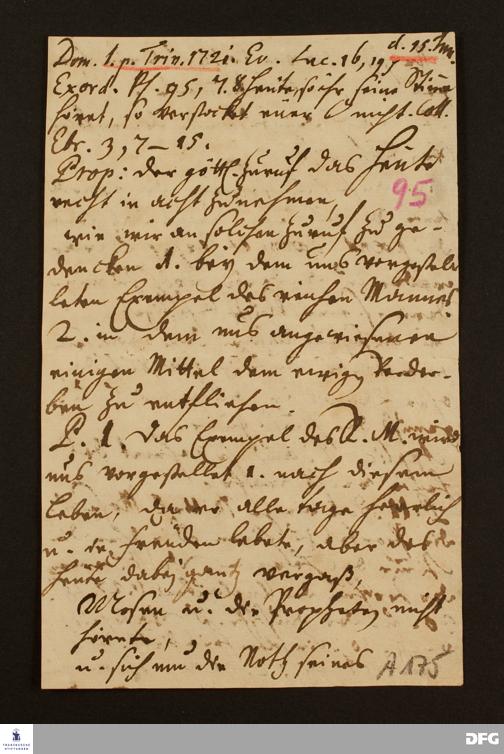 Dom. 1. p. Trin. 1721. Ev. Luc. 16, 19. d. 15. Jun.
Exord. Ps. 95, 7. 8. Heute, so ihr seine Stimme
höret, so verstocket euer ♡ nicht. Coll.
Ebr. 3, 7–15.
Prop: der göttl. Zuruf das Heute
recht in acht zu nehmen,
95
wie wir an solchen Zuruf zu ge-
dencken 1. bey dem uns vorgestel-
leten Exempel des reichen Mannes
2. in dem uns angewiesenen
einigen Mittel dem ewigen Verder-
ben zu entfliehen.
P. 1. Das Exempel des R. M. wird
uns vorgestellet 1. nach diesem
Leben, da er alle tage herrlich
u. in freuden lebete, aber das
heute dabey gantz vergaß,
Mosen u. die Propheten nicht
hörete,
u. sich um die Noth seines
A 175
FRANCKESCHE STIFTUNGEN
DFG